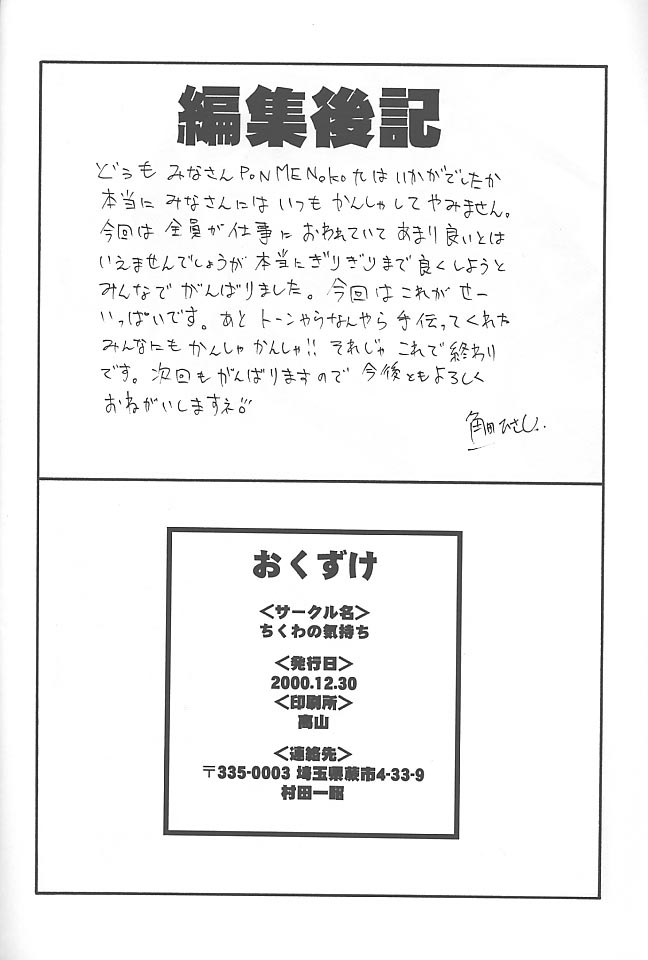 編集後記
どうも みなさん PoNMENoko九は いかがでしたか
本当に みなさんには いつも かんしゃしてやみません。
今回は 全員が 仕事に おわれていて あまり 良いとは
いえませんでしょうが 本当にぎりぎりまで 良くしようと
みんなで がんばりました。今回は これが せー
いっぱいです。あと トーンやらなんやら 手伝ってくれた
みんなにも かんしゃ かんしゃ!! それじゃ これで 終わり
です。次回も がんばりますので 今後ともよろしく
おねがいしますネ
角田ひさし..
おくずけ
<サークル名>
ちくわの気持ち
<発行日>
2000.12.30
<印刷所>
高山
<連絡先>
〒335-0003 埼玉県蕨市4-33-9
村田一昭